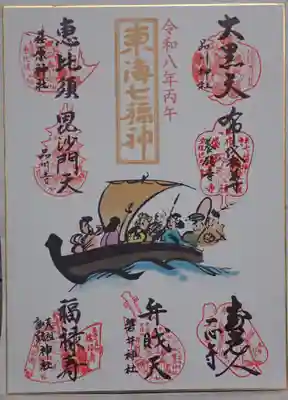 大黒天
品川神社
布袋尊
養願寺
令和八年丙午
東海七福神
恵比須
荏原神社
毘沙門天
品川寺
寿老人
一心寺
弁財天
磐井神社
福禄寿
天祖諏訪神社